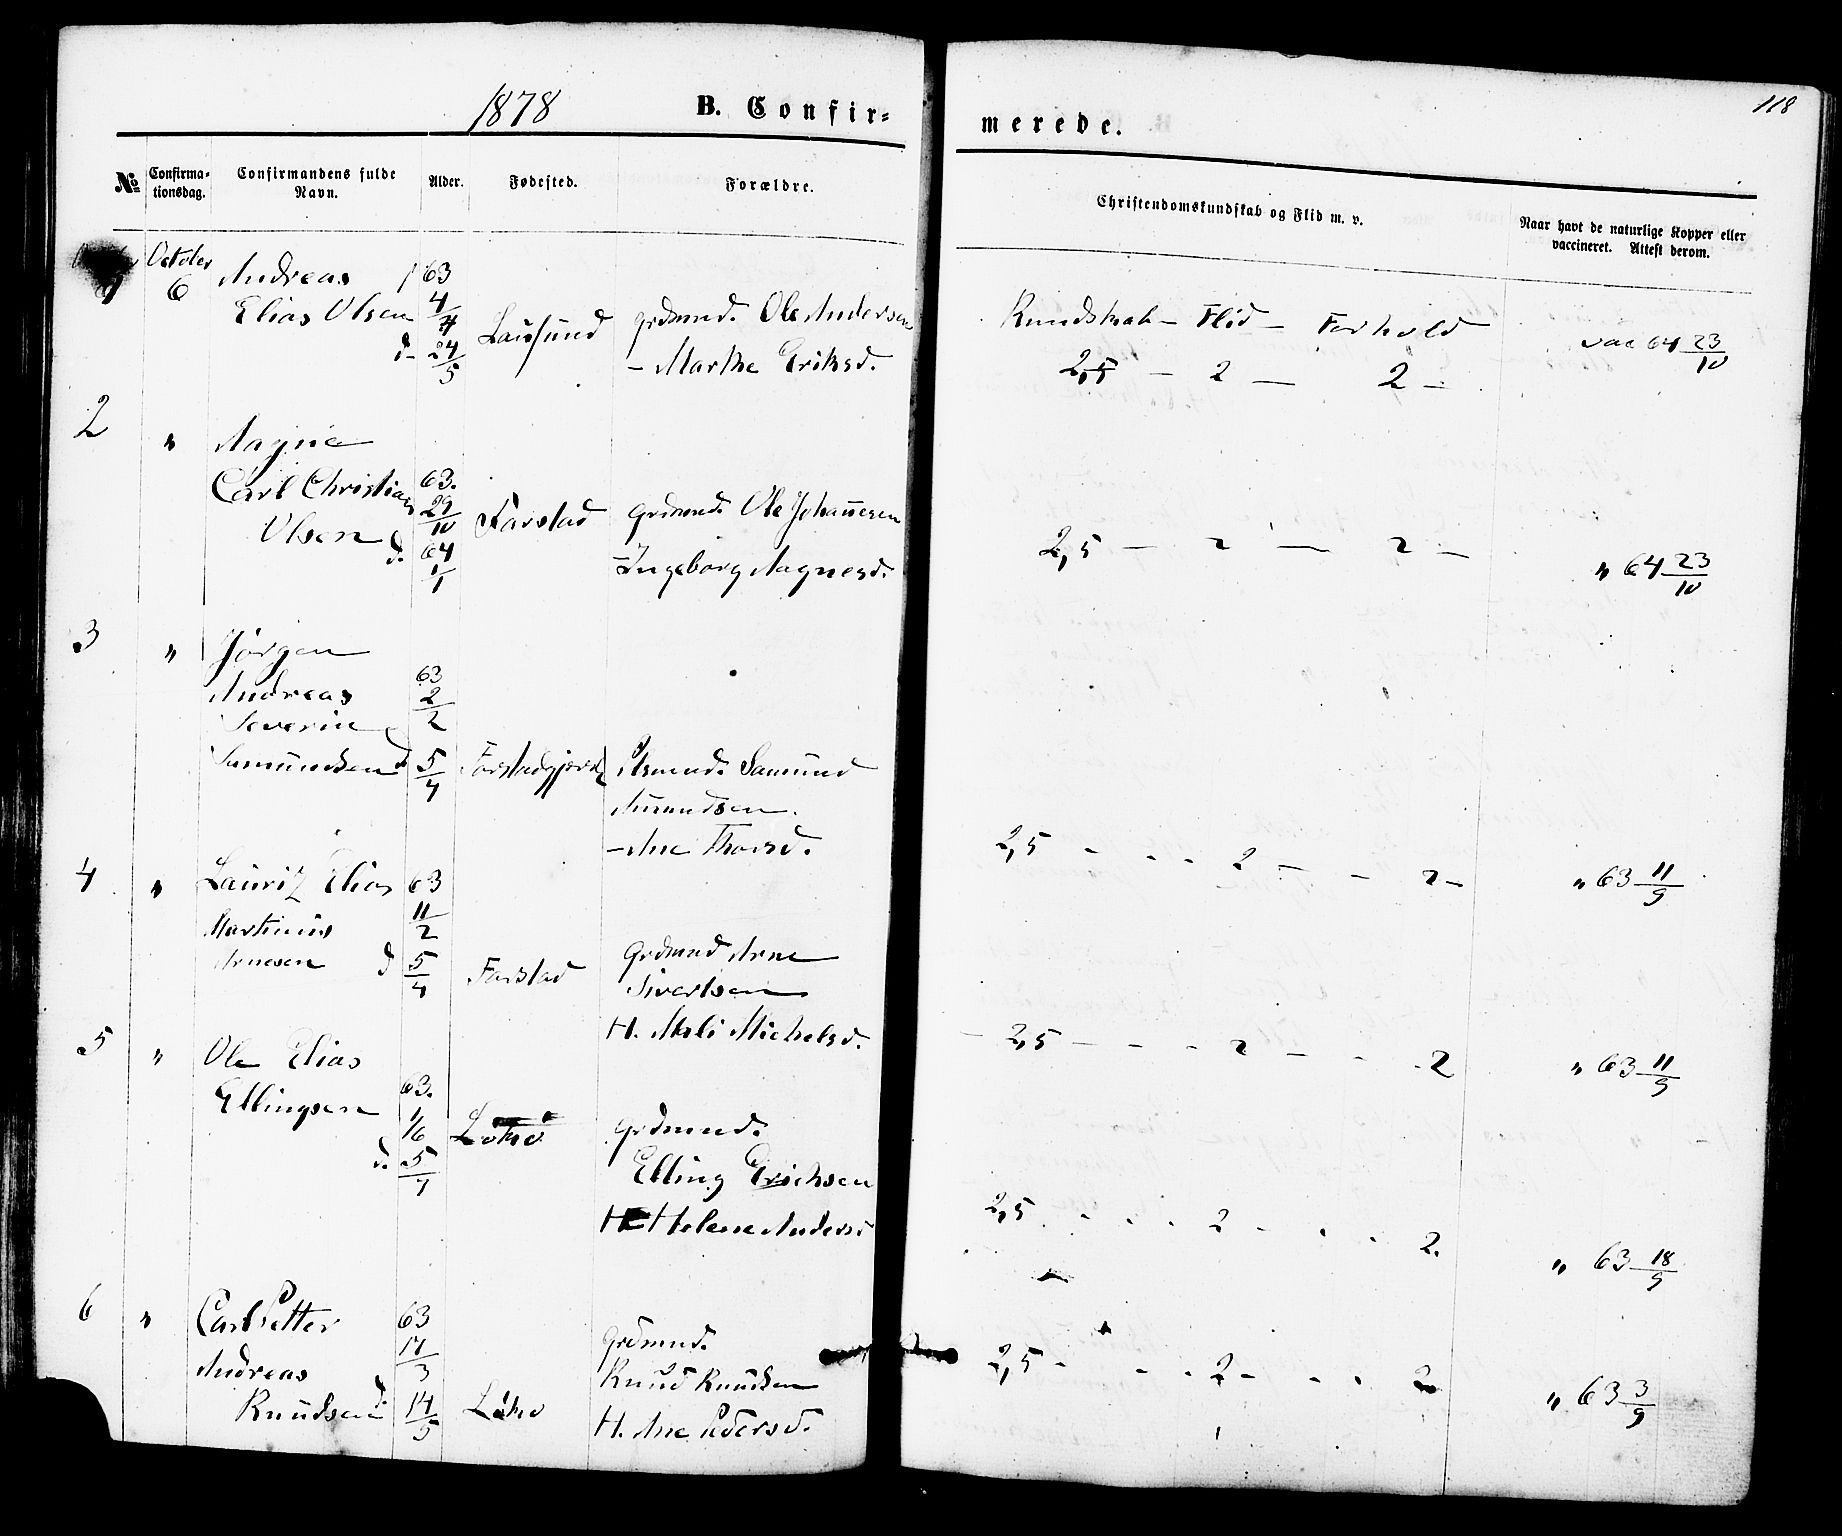 118
1878 B. Confir-merede.
No Confirma-tionsdag. Confirmandens fulde Navn. Alder. Fødested. Forældre. Christendomskundskab og Flid m. v. Naar havt de naturlige Kopper eller vaccineret. Attest derom.
1 October 6 Andreas 63
Elias Olsen 4/4 Lausund grdmnd. Ole Andersen Kundskab – Flid – Forhold vac 64 23/10
d. 24/5 – Marthe Eriksd. 2,5 – 2 – 2 –
2 " Magne
Carl Christian 63.
29/10 Farstad grdmnd. Ole Johannesen 2,5 – 2 – 2 – " 64 23/10
Olsen d. 64
1/1 Ingeborg Magnesd.
3 " Jørgen
Andreas 63
2/2
Severin
Samundsen d 5/4 Farstadgjerde Samund
Amundsen.
– Ane Thorsd. 2,5 - - - 2 – - 2 – " 63 11/9
4 " Lauritz Elias 63
Martinus 11/2
Arnesen d 5/4 Farstad grdmnd Arne
Sivertsen
H. Mali Michelsd. – 2,5 – - - 2 – - 2 " 63 11/9
5 " Ole Elias
Ellingsen 63.
1/6 grdmnd.
d. 5/7 Elling Erichsen
H Helene Andersd 2,5 - - - 2 - - - 2. " 63 18/9
6 " Carl Petter 63
17/3 grdmnd.
Andreas Knud Knudsen 2,5 - - - 2 - - - 2 " 63 3/9
Knudsen d. 14/5 H. Ane Pedersd.